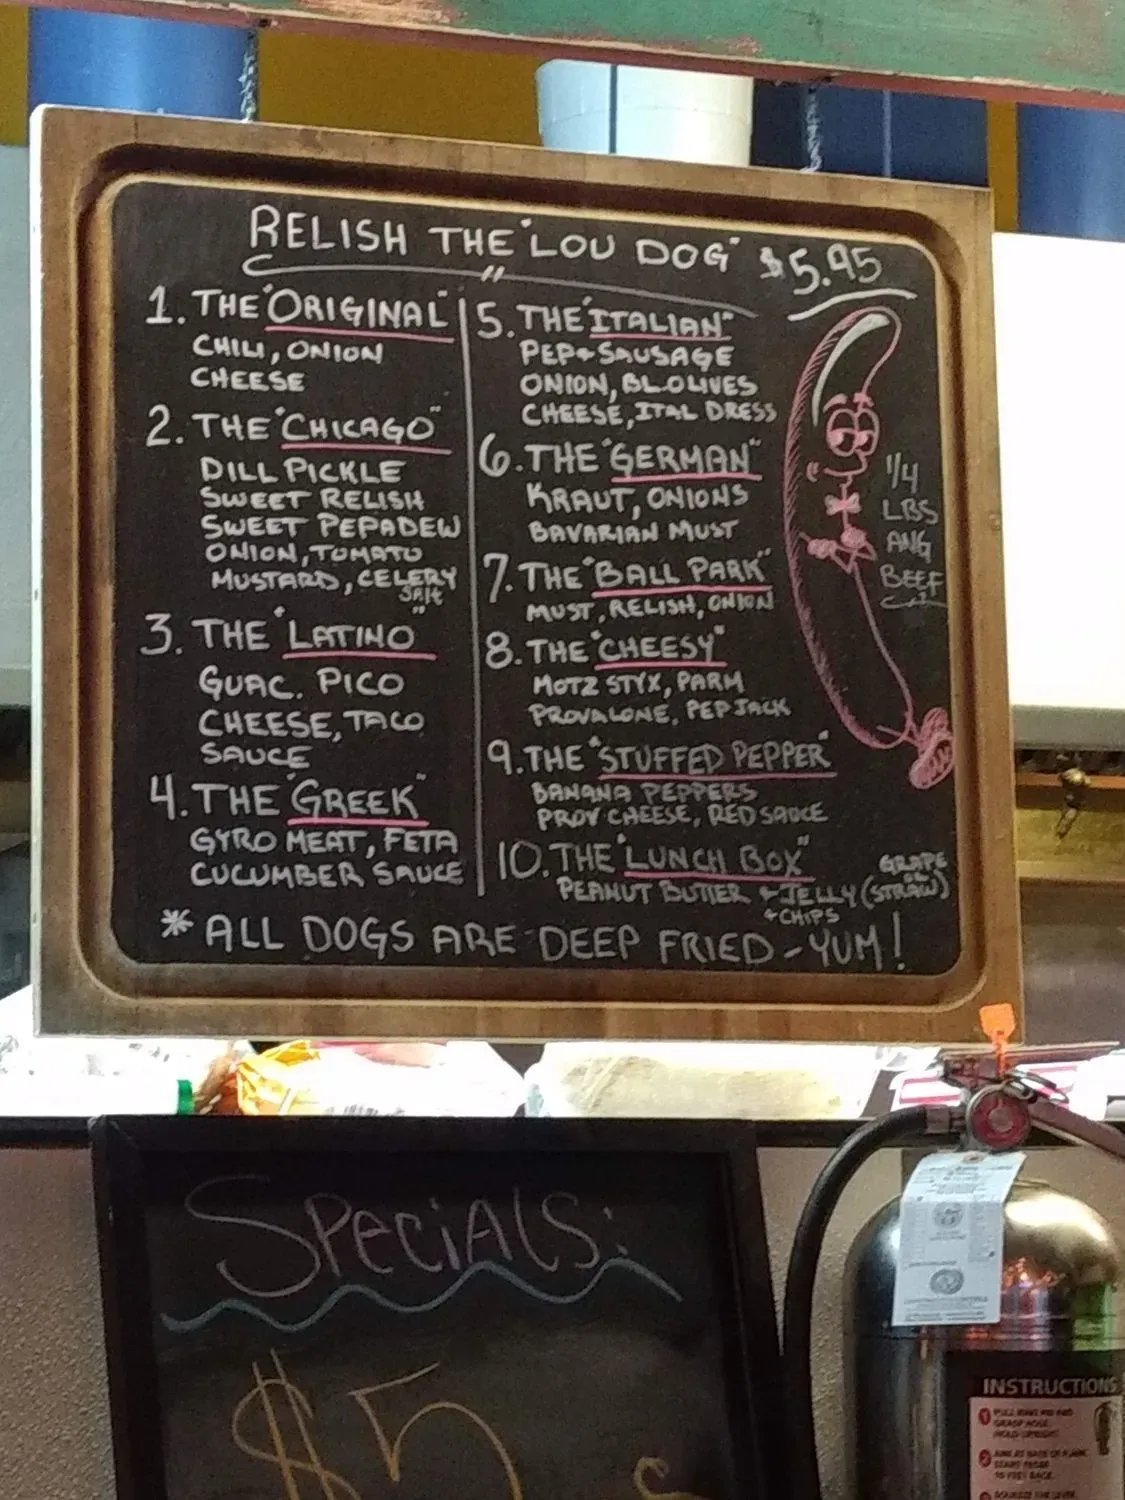 RELISH THE "LOU DOG" $5.95
1. THE "ORIGINAL"
CHILI, ONION
CHEESE
2. THE "CHICAGO"
DILL PICKLE
SWEET RELISH
SWEET PEPADEW
ONION, TOMATO
MUSTARD, CELERY
SALT
3. THE "LATINO"
GUAC. PICO
CHEESE, TACO
SAUCE
4. THE "GREEK"
GYRO MEAT, FETA
CUCUMBER SAUCE
5. THE "ITALIAN"
PEP & SAUSAGE
ONION, BL OLIVES
CHEESE, ITAL DRESS
6. THE "GERMAN"
KRAUT, ONIONS
BAVARIAN MUST
7. THE "BALL PARK"
MUST, RELISH, ONION
8. THE "CHEESY"
MOTZ STYX, PARM
PROVALONE, PEPJACK
9. THE "STUFFED PEPPER"
BANANA PEPPERS
PROV CHEESE, RED SAUCE
10. THE "LUNCH BOX"
PEANUT BUTTER & JELLY (GRAPE OR STRAW)
& CHIPS
1/4
LBS
ANG
BEEF
* ALL DOGS ARE DEEP FRIED - YUM!
SPECIALS:
$5
INSTRUCTIONS
1 PULL
GRASP HOSE.
HOLD UPRIGHT.
2 AIM AT BASE OF FLAME.
START FROM
10 FEET BACK.
SQUEEZE THE LEVER.